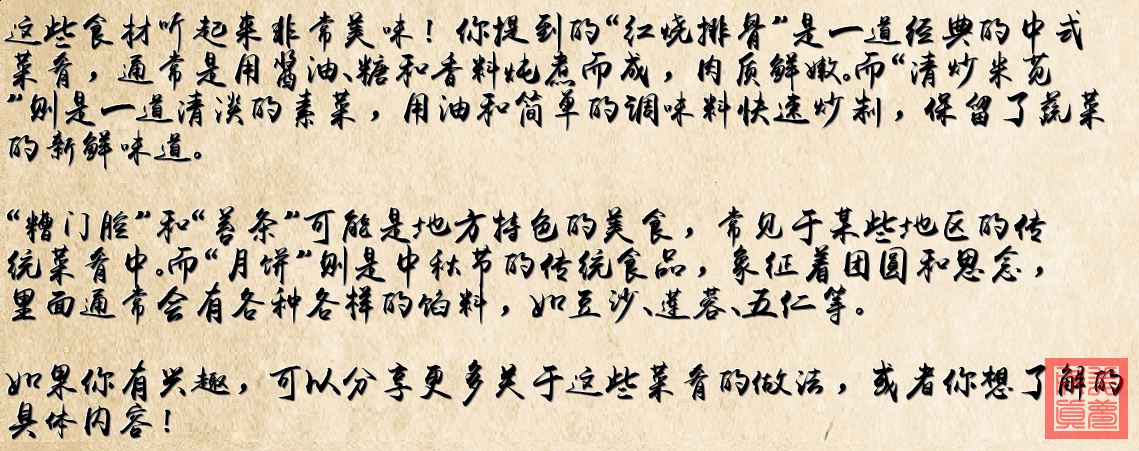 这些食材听起来非常美味！你提到的“红烧排骨”是一道经典的中式
菜肴，通常是用酱油、糖和香料炖煮而成，肉质鲜嫩。而“清炒米苋
”则是一道清淡的素菜，用油和简单的调味料快速炒制，保留了蔬菜
的新鲜味道。
“糟门腔”和“苔条”可能是地方特色的美食，常见于某些地区的传
统菜肴中。而“月饼”则是中秋节的传统食品，象征着团圆和思念，
里面通常会有各种各样的馅料，如豆沙、莲蓉、五仁等。
如果你有兴趣，可以分享更多关于这些菜肴的做法，或者你想了解的
具体内容！